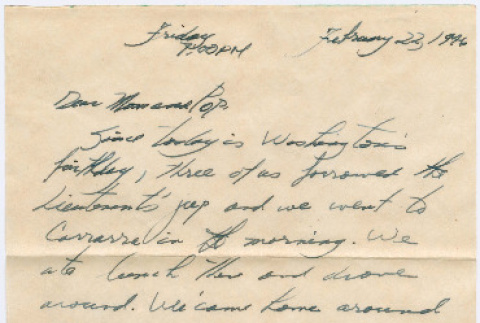 Friday
9:00PM
February 22, 1946
Dear Mom and Pop,
Since today is Washington's
birthday, three of us borrowed the
Lieutenant's jeep and we went to
Carrarra in the morning. We
ate lunch there and drove
around. We came home around